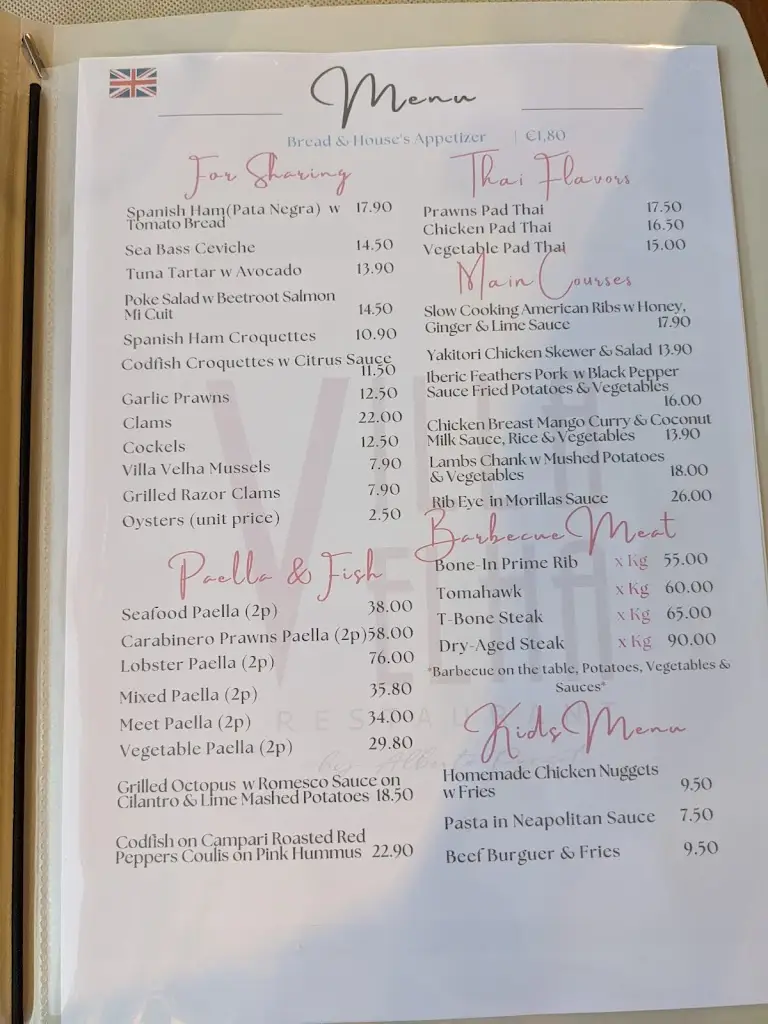 Menu
Bread & House's Appetizer | €1,80
For Sharing
Spanish Ham(Pata Negra) w 17.90
Tomato Bread
Sea Bass Ceviche 14.50
Tuna Tartar w Avocado 13.90
Poke Salad w Beetroot Salmon
Mi Cuit 14.50
Spanish Ham Croquettes 10.90
Codfish Croquettes w Citrus Sauce
11.50
Garlic Prawns 12.50
Clams 22.00
Cockels 12.50
Villa Velha Mussels 7.90
Grilled Razor Clams 7.90
Oysters (unit price) 2.50
Paella & Fish
Seafood Paella (2p) 38.00
Carabinero Prawns Paella (2p)58.00
Lobster Paella (2p) 76.00
Mixed Paella (2p) 35.80
Meet Paella (2p) 34.00
Vegetable Paella (2p) 29.80
Grilled Octopus w Romesco Sauce on
Cilantro & Lime Mashed Potatoes 18.50
Codfish on Campari Roasted Red
Peppers Coulis on Pink Hummus 22.90
Thai Flavors
Prawns Pad Thai 17.50
Chicken Pad Thai 16.50
Vegetable Pad Thai 15.00
Main Courses
Slow Cooking American Ribs w Honey,
Ginger & Lime Sauce 17.90
Yakitori Chicken Skewer & Salad 13.90
Iberic Feathers Pork w Black Pepper
Sauce Fried Potatoes & Vegetables
16.00
Chicken Breast Mango Curry & Coconut
Milk Sauce, Rice & Vegetables 13.90
Lambs Chank w Mushed Potatoes
& Vegetables 18.00
Rib Eye in Morillas Sauce 26.00
Barbecue Meat
Bone-In Prime Rib x Kg 55.00
Tomahawk x Kg 60.00
T-Bone Steak x Kg 65.00
Dry-Aged Steak x Kg 90.00
*Barbecue on the table, Potatoes, Vegetables &
Sauces*
Kids Menu
Homemade Chicken Nuggets
w Fries 9.50
Pasta in Neapolitan Sauce 7.50
Beef Burguer & Fries 9.50
VILLA
VELHA
RESTAURANT